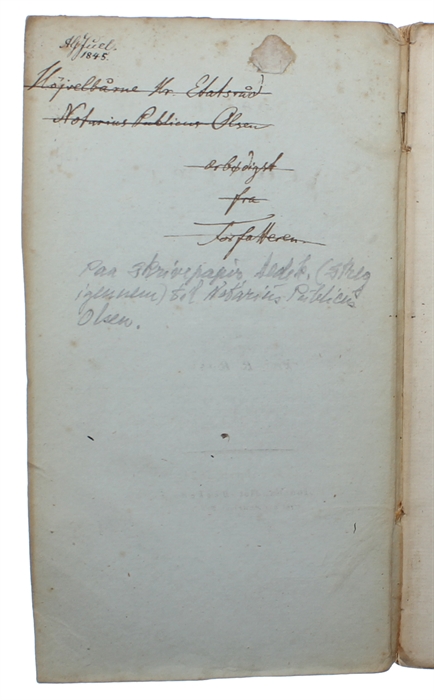 HJuel.
1845.
Höjvelbårne Hr. Etatsråd
Notarius Publicus Olsen
ærbödigst
fra
Forfatteren.
Paa skrivepapir, dedik. (streg
igennem) til Notarius Publicus
Olsen.